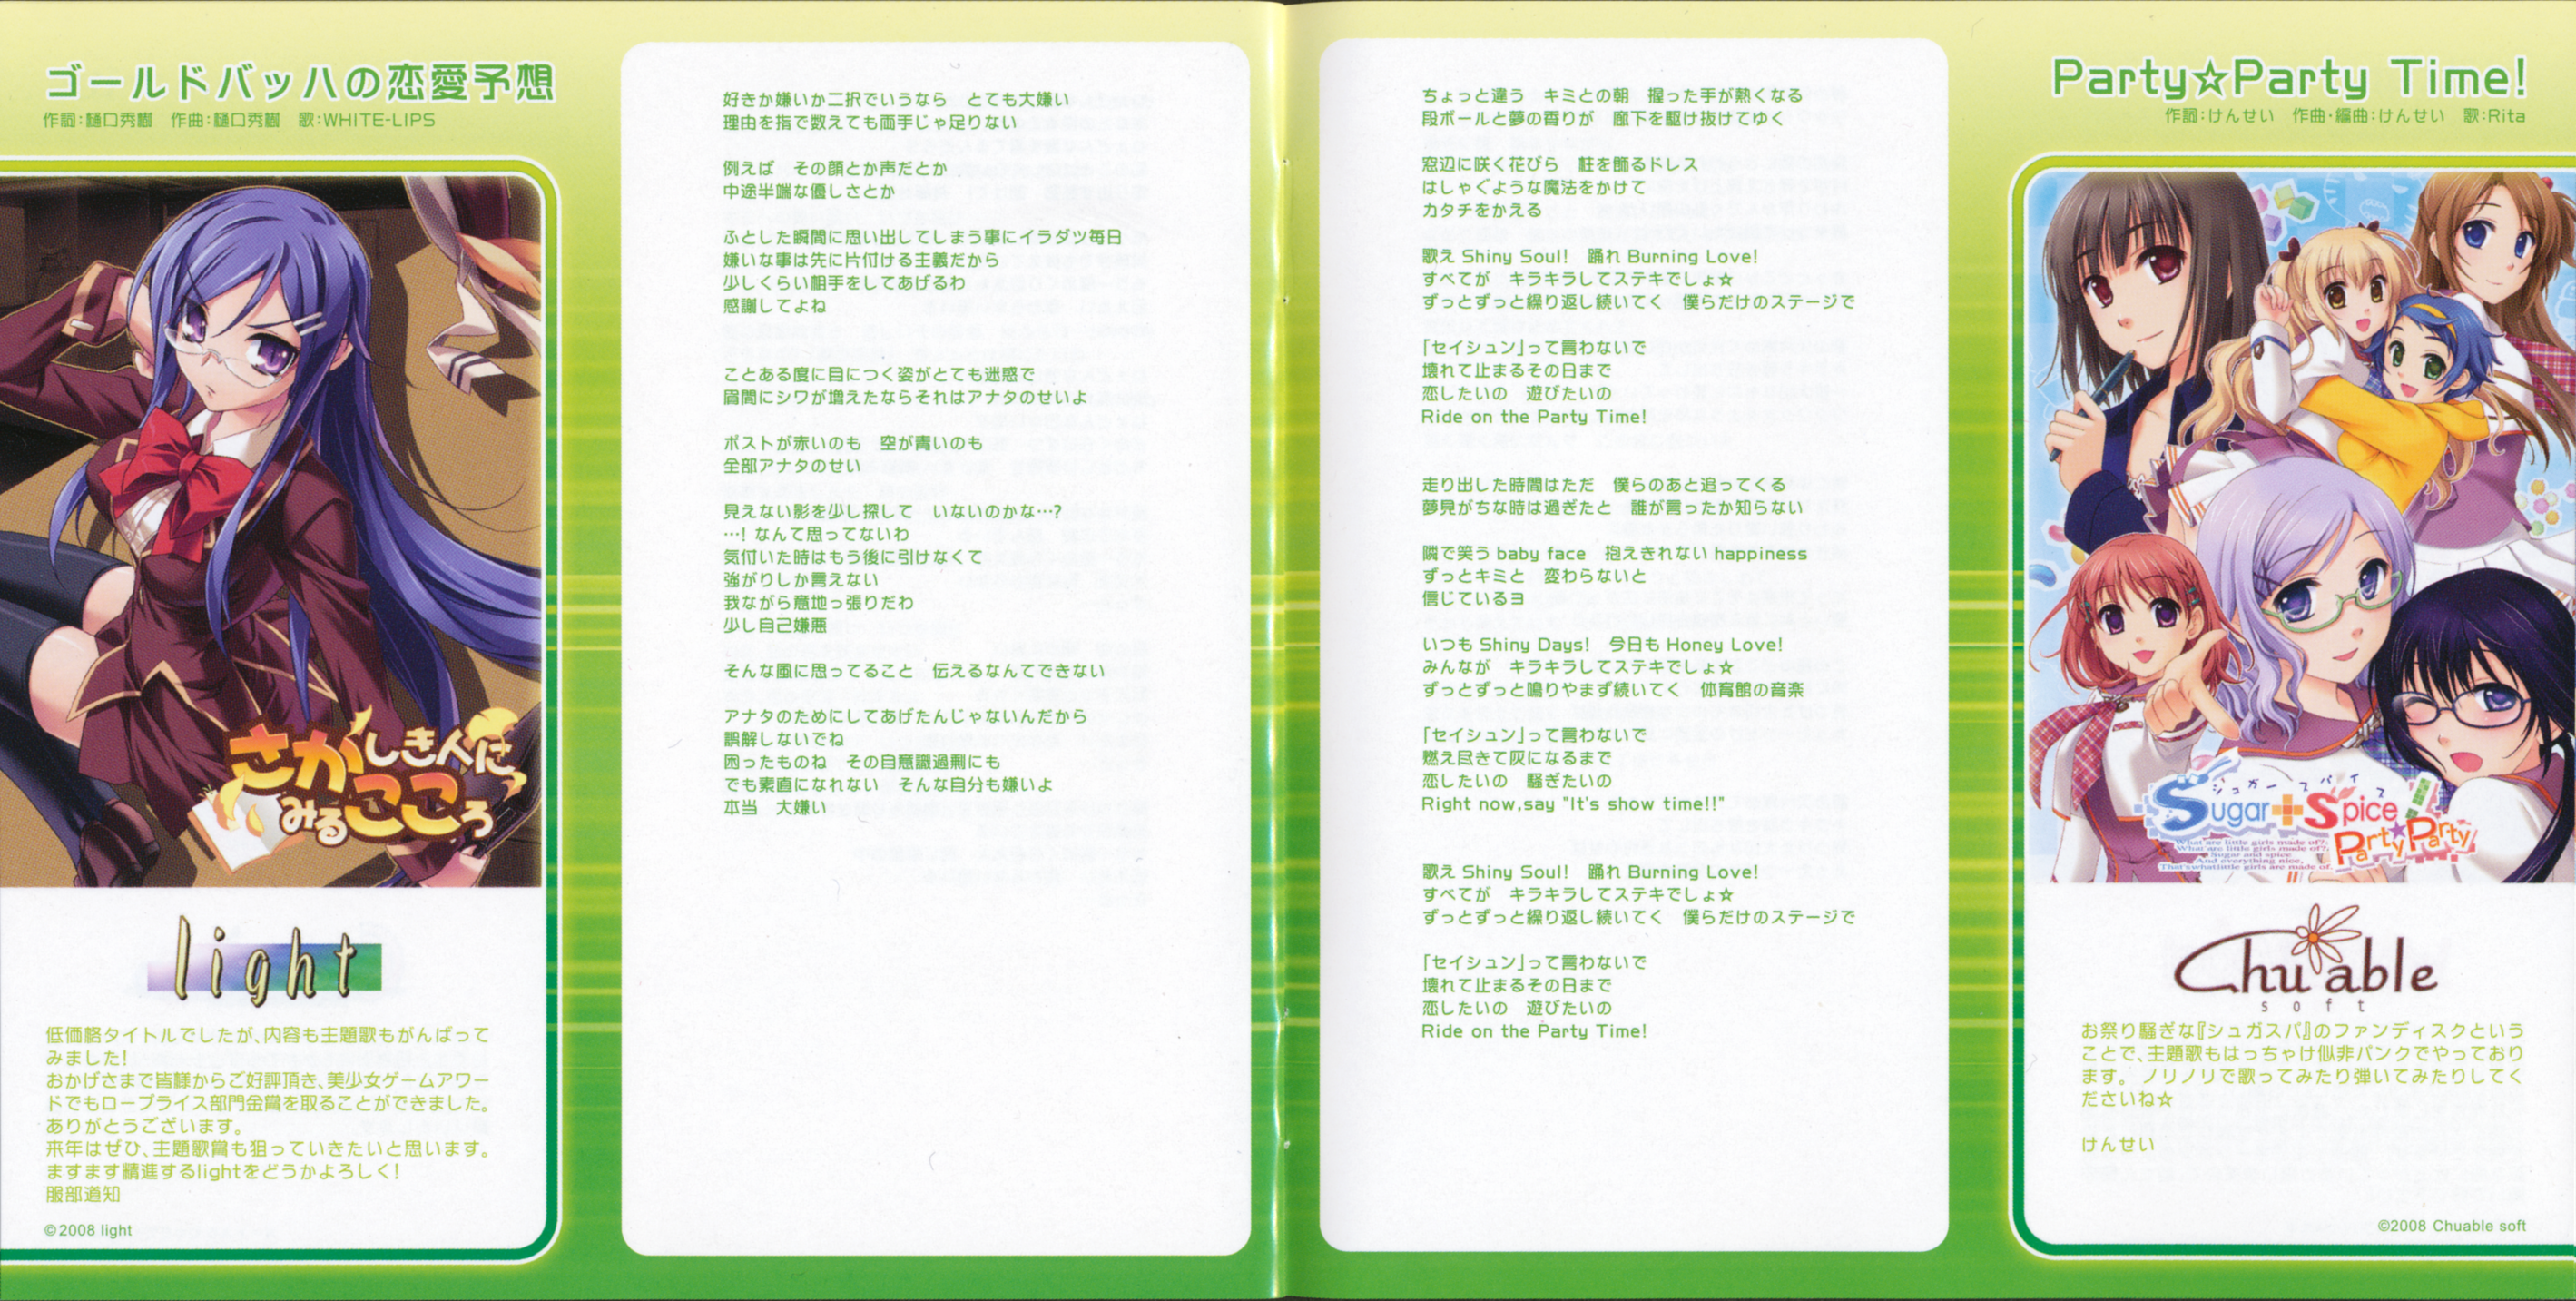 ゴールドバッハの恋愛予想
作詞：樋口秀樹　作曲：樋口秀樹　歌：WHITE-LIPS
さかしき人に
みるこころ
light
低価格タイトルでしたが、内容も主題歌もがんばって
みました！
おかげさまで皆様からご好評頂き、美少女ゲームアワー
ドでもロープライス部門金賞を取ることができました。
ありがとうございます。
来年はぜひ、主題歌賞も狙っていきたいと思います。
ますます精進するlightをどうかよろしく！
服部道知
©2008 light
好きか嫌いか二択でいうなら　とても大嫌い
理由を指で数えても両手じゃ足りない
例えば　その顔とか声だとか
中途半端な優しさとか
ふとした瞬間に思い出してしまう事にイラダツ毎日
嫌いな事は先に片付ける主義だから
少しくらい相手をしてあげるわ
感謝してよね
ことある度に目につく姿がとても迷惑で
眉間にシワが増えたならそれはアナタのせいよ
ポストが赤いのも　空が青いのも
全部アナタのせい
見えない影を少し探して　いないのかな…？
…！なんて思ってないわ
気付いた時はもう後に引けなくて
強がりしか言えない
我ながら意地っ張りだわ
少し自己嫌悪
そんな風に思ってること　伝えるなんてできない
アナタのためにしてあげたんじゃないんだから
誤解しないでね
困ったものね　その自意識過剰にも
でも素直になれない　そんな自分も嫌いよ
本当　大嫌い
ちょっと違う　キミとの朝　握った手が熱くなる
段ボールと夢の香りが　廊下を駆け抜けてゆく
窓辺に咲く花びら　柱を飾るドレス
はしゃぐような魔法をかけて
カタチをかえる
歌え Shiny Soul!　踊れ Burning Love!
すべてが　キラキラしてステキでしょ☆
ずっとずっと繰り返し続いてく　僕らだけのステージで
「セイシュン」って言わないで
壊れて止まるその日まで
恋したいの　遊びたいの
Ride on the Party Time!
走り出した時間はただ　僕らのあと追ってくる
夢見がちな時は過ぎたと　誰が言ったか知らない
隣で笑う baby face　抱えきれない happiness
ずっとキミと　変わらないと
信じているヨ
いつも Shiny Days!　今日も Honey Love!
みんなが　キラキラしてステキでしょ☆
ずっとずっと鳴りやまず続いてく　体育館の音楽
「セイシュン」って言わないで
燃え尽きて灰になるまで
恋したいの　騒ぎたいの
Right now,say "It's show time!!"
歌え Shiny Soul!　踊れ Burning Love!
すべてが　キラキラしてステキでしょ☆
ずっとずっと繰り返し続いてく　僕らだけのステージで
「セイシュン」って言わないで
壊れて止まるその日まで
恋したいの　遊びたいの
Ride on the Party Time!
Party☆Party Time!
作詞：けんせい　作曲・編曲：けんせい　歌：Rita
シュガースパイス
Sugar+Spice!
Party☆Party
What are little girls made of?,
What are little girls made of?,
Sugar and spice
And everything nice,
That's what little girls are made of.
Chu able
soft
お祭り騒ぎな『シュガスパ』のファンディスクという
ことで、主題歌もはっちゃけ似非パンクでやっており
ます。ノリノリで歌ってみたり弾いてみたりしてく
ださいね☆
けんせい
©2008 Chuable soft